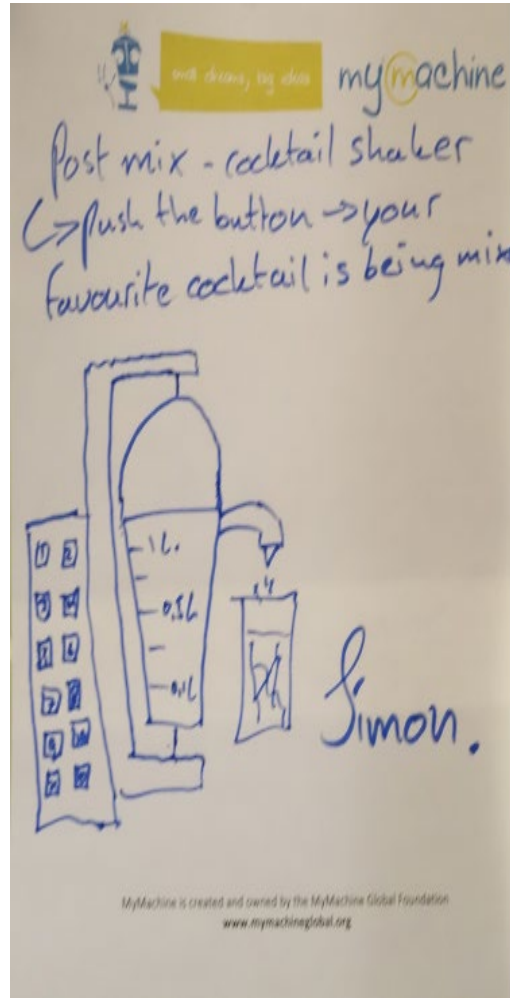 small dreams, big ideas
mymachine
Post mix - cocktail shaker
↳ push the button → your
favourite cocktail is being mix
1L.
0,5L
0,1L
1 2
Simon.
MyMachine is created and owned by the MyMachine Global Foundation
www.mymachineglobal.org